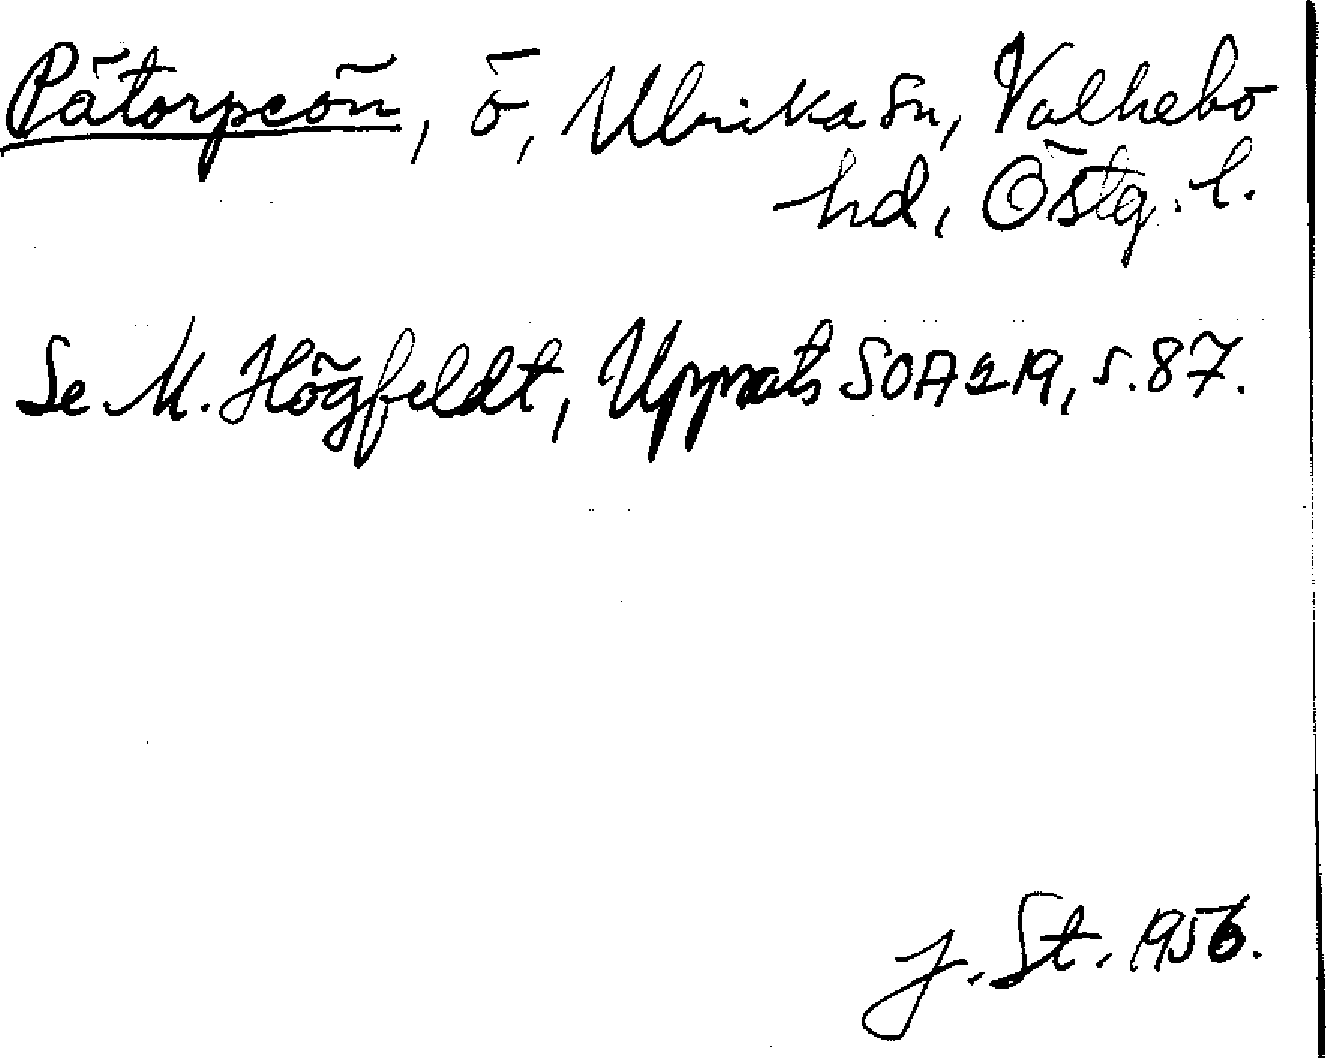 Påtorpeön, ö, Ulrika sn, Valkebo
hd, Östg. l.
Se M. Högfeldt, Uppsats SOA 219, s. 87.
J. St. 1956.